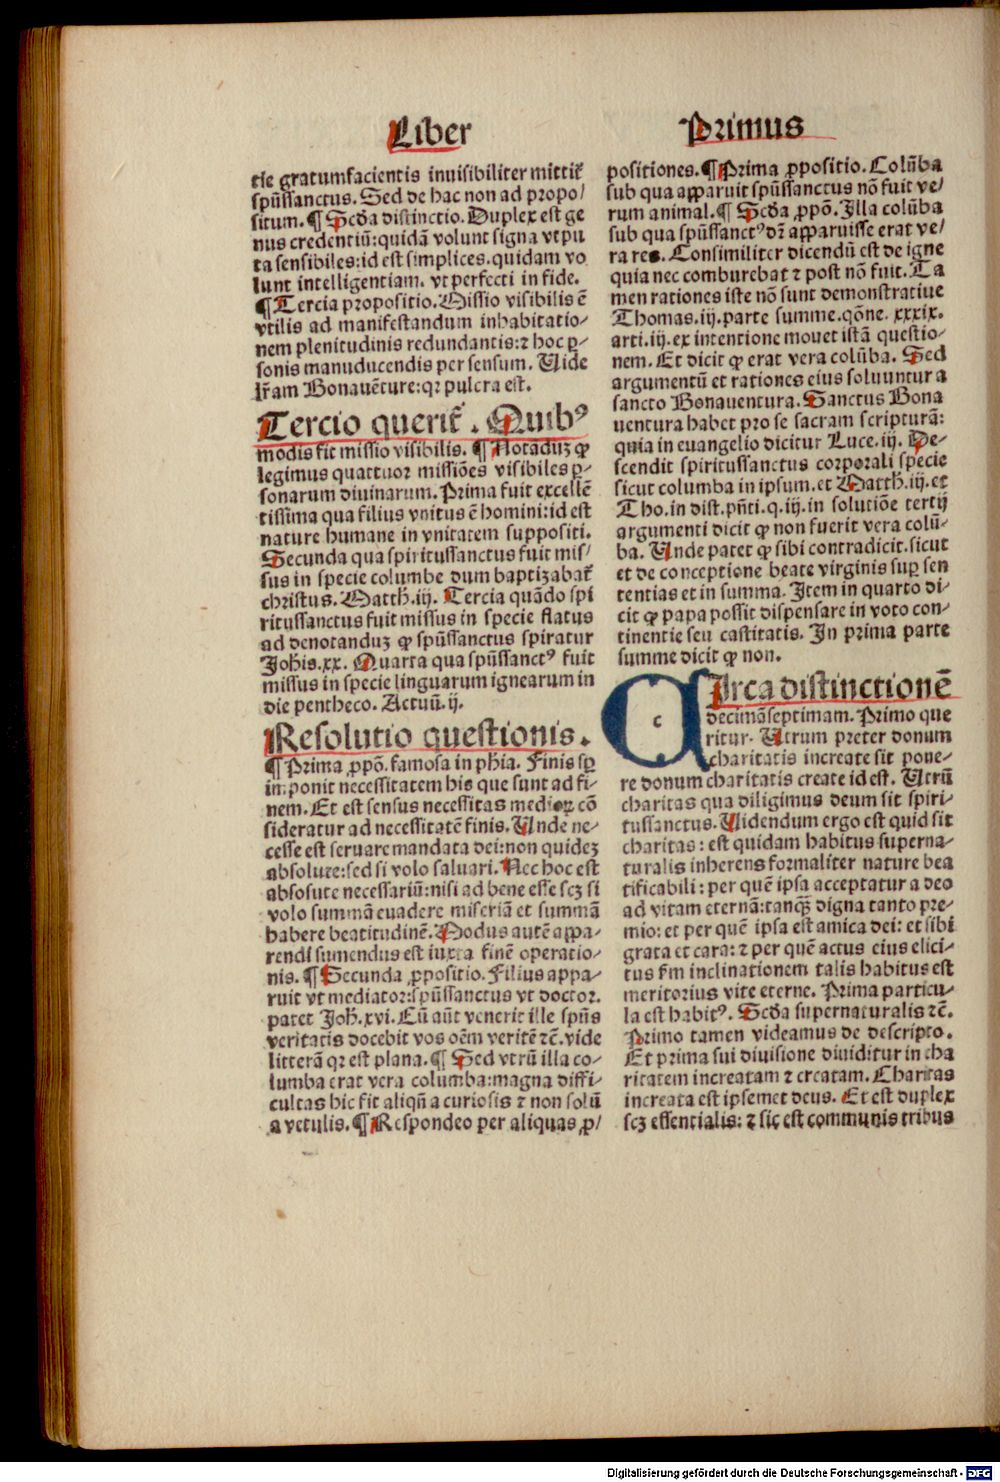 Liber
Primus
tie gratumfacientis inuisibiliter mittit᷑
spūssanctus. Sed de hac non ad propo/
situm. ¶ Scďa distinctio. Duplex est ge
nus credentiū: quidā volunt signa vt pu
ta sensibiles: id est simplices. quidam vo
lunt intelligentiam. vt perfecti in fide.
¶ Tercia propositio. Missio visibilis ē
vtilis ad manifestandum inhabitatio-
nem plenitudinis redundantis: ⁊ hoc ꝑ-
sonis manuducendis per sensum. Uide
lr̄am Bonauēture: qꝛ pulcra est.
Tercio querit᷑. Quibꝰ
modis fit missio visibilis. ¶ Notāduꝫ ꝙ
legimus quattuor missiōes visibiles ꝑ-
sonarum diuinarum. Prima fuit excellē
tissima qua filius vnitus ē homini: id est
nature humane in vnitatem suppositi.
Secunda qua spiritussanctus fuit mis/
sus in specie columbe dum baptizabat᷑
christus. Matth̄. iij. Tercia quādo spi
ritussanctus fuit missus in specie flatus
ad denotanduꝫ ꝙ spūssanctus spiratur
Joh̄is. xx. Quarta qua spūssanctꝰ fuit
missus in specie linguarum ignearum in
die pentheco. Actuū. ij.
Resolutio questionis.
¶ Prima ꝓpō. famosa in ph̄ia. Finis sꝑ
im ponit necessitatem his que sunt ad fi-
nem. Et est sensus necessitas medioꝝ cō
sideratur ad necessitatē finis. Unde ne-
cesse est seruare mandata dei: non quidez
absolute: sed si volo saluari. Nec hoc est
absosute necessariū: nisi ad bene esse scꝫ si
volo summā euadere miseriā et summā
habere beatitudinē. Modus autē appa-
rendi sumendus est iuxta finē operatio-
nis. ¶ Secunda ꝓpositio. Filius appa-
ruit vt mediator: spūssanctus vt doctor.
patet Joh̄. xvi. Cū aūt venerit ille spūs
veritatis docebit vos oēm veritē ⁊c̄. vide
litterā qꝛ est plana. ¶ Sed vtrū illa co-
lumba erat vera columba: magna diffi-
cultas hic fit aliqn̄ a curiosis ⁊ non solū
a vetulis. ¶ Respondeo per aliquas ꝓ/
positiones. ¶ Prima ꝓpositio. Colūba
sub qua apparuit spūssanctus nō fuit ve/
rum animal. ¶ Scďa ꝓpō. Illa colūba
sub qua spūssanctꝰ dꝛ̄ apparuisse erat ve/
ra res. Consimiliter dicendū est de igne
quia nec comburebat ⁊ post nō fuit. Ta
men rationes iste nō sunt demonstratiue
Thomas. iij. parte summe. qōne. xxxix.
arti. iij. ex intentione mouet istā questio-
nem. Et dicit ꝙ erat vera colūba. Sed
argumentū et rationes eius soluuntur a
sancto Bonauentura. Sanctus Bona
uentura habet pro se sacram scripturā:
quia in euangelio dicitur Luce. iij. De-
scendit spiritussanctus corporali specie
sicut columba in ipsum. et Matth̄. iij. et
Tho. in dist. pn̄ti. q. iij. in solutiōe tertij
argumenti dicit ꝙ non fuerit vera colū-
ba. Unde patet ꝙ sibi contradicit. sicut
et de conceptione beate virginis suꝑ sen
tentias et in summa. Item in quarto di-
cit ꝙ papa possit dispensare in voto con-
tinentie seu castitatis. In prima parte
summe dicit ꝙ non.
c
CIrca distinctionē
decimāseptimam. Primo que
ritur. Utrum preter donum
charitatis increate sit pone-
re donum charitatis create id est. Utrū
charitas qua diligimus deum sit spiri-
tussanctus. Uidendum ergo est quid sit
charitas: est quidam habitus superna-
turalis inherens formaliter nature bea
tificabili: per quē ipsa acceptatur a deo
ad vitam eternā: tanqꝫ̄ digna tanto pre-
mio: et per quē ipsa est amica dei: et sibi
grata et cara: ⁊ per quē actus eius elici-
tus fm̄ inclinationem talis habitus est
meritorius vite eterne. Prima particu-
la est habitꝰ. Scďa supernaturalis ⁊c̄.
Primo tamen videamus de descripto.
Et prima sui diuisione diuiditur in cha
ritatem increatam ⁊ creatam. Charitas
increata est ipsemet deus. Et est duplex
scꝫ essentialis: ⁊ sic est communis tribus
Digitalisierung gefördert durch die Deutsche Forschungsgemeinschaft - DFG